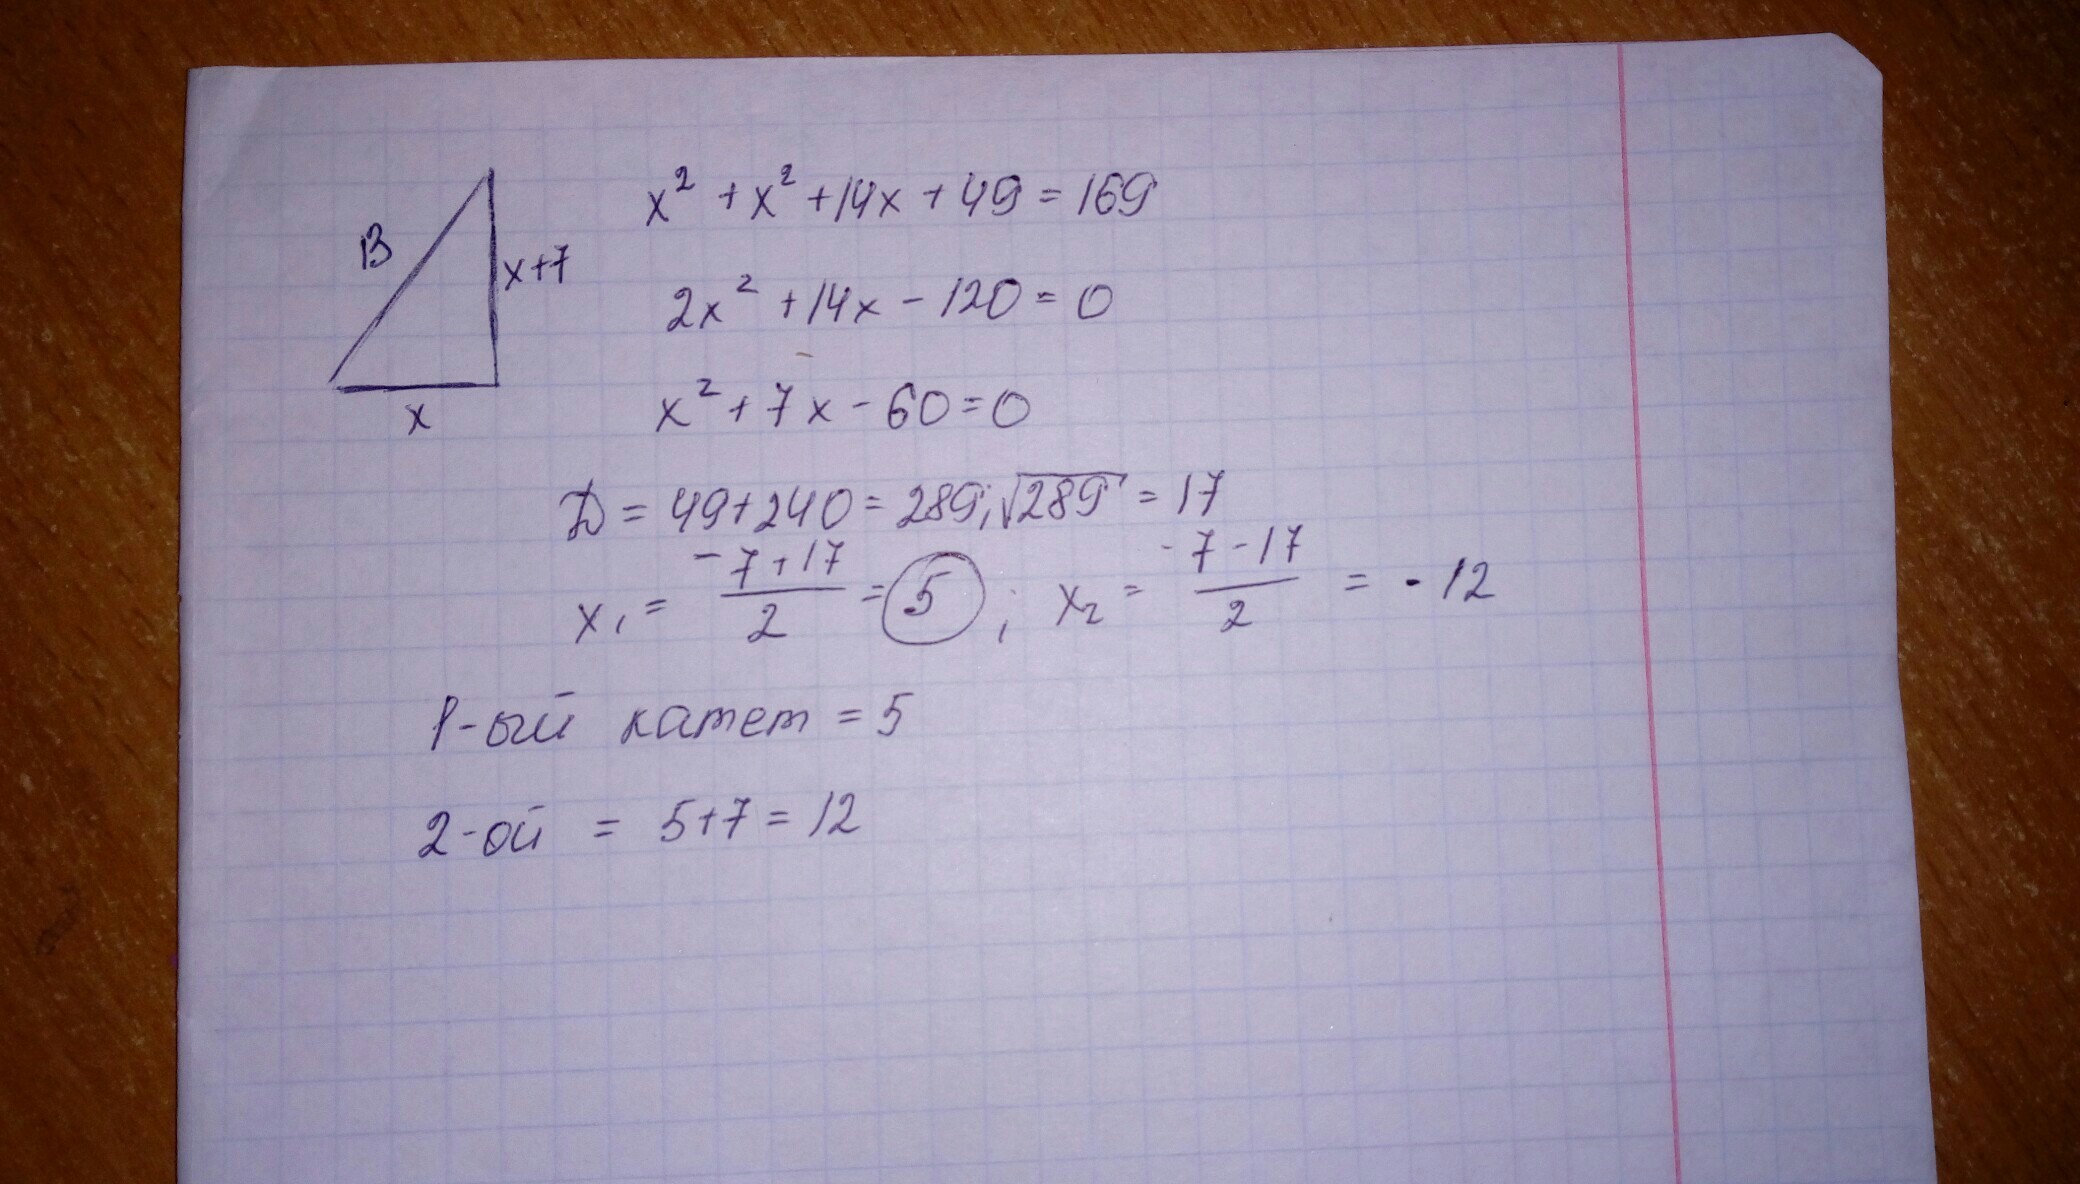 13
x+7
x
x² + x² + 14x + 49 = 169
2x² + 14x - 120 = 0
x² + 7x - 60 = 0
D = 49+240 = 289; √289 = 17
x₁ = (-7+17)/2 = 5 ; x₂ = (-7-17)/2 = -12
1-ый катет = 5
2-ой = 5+7 = 12